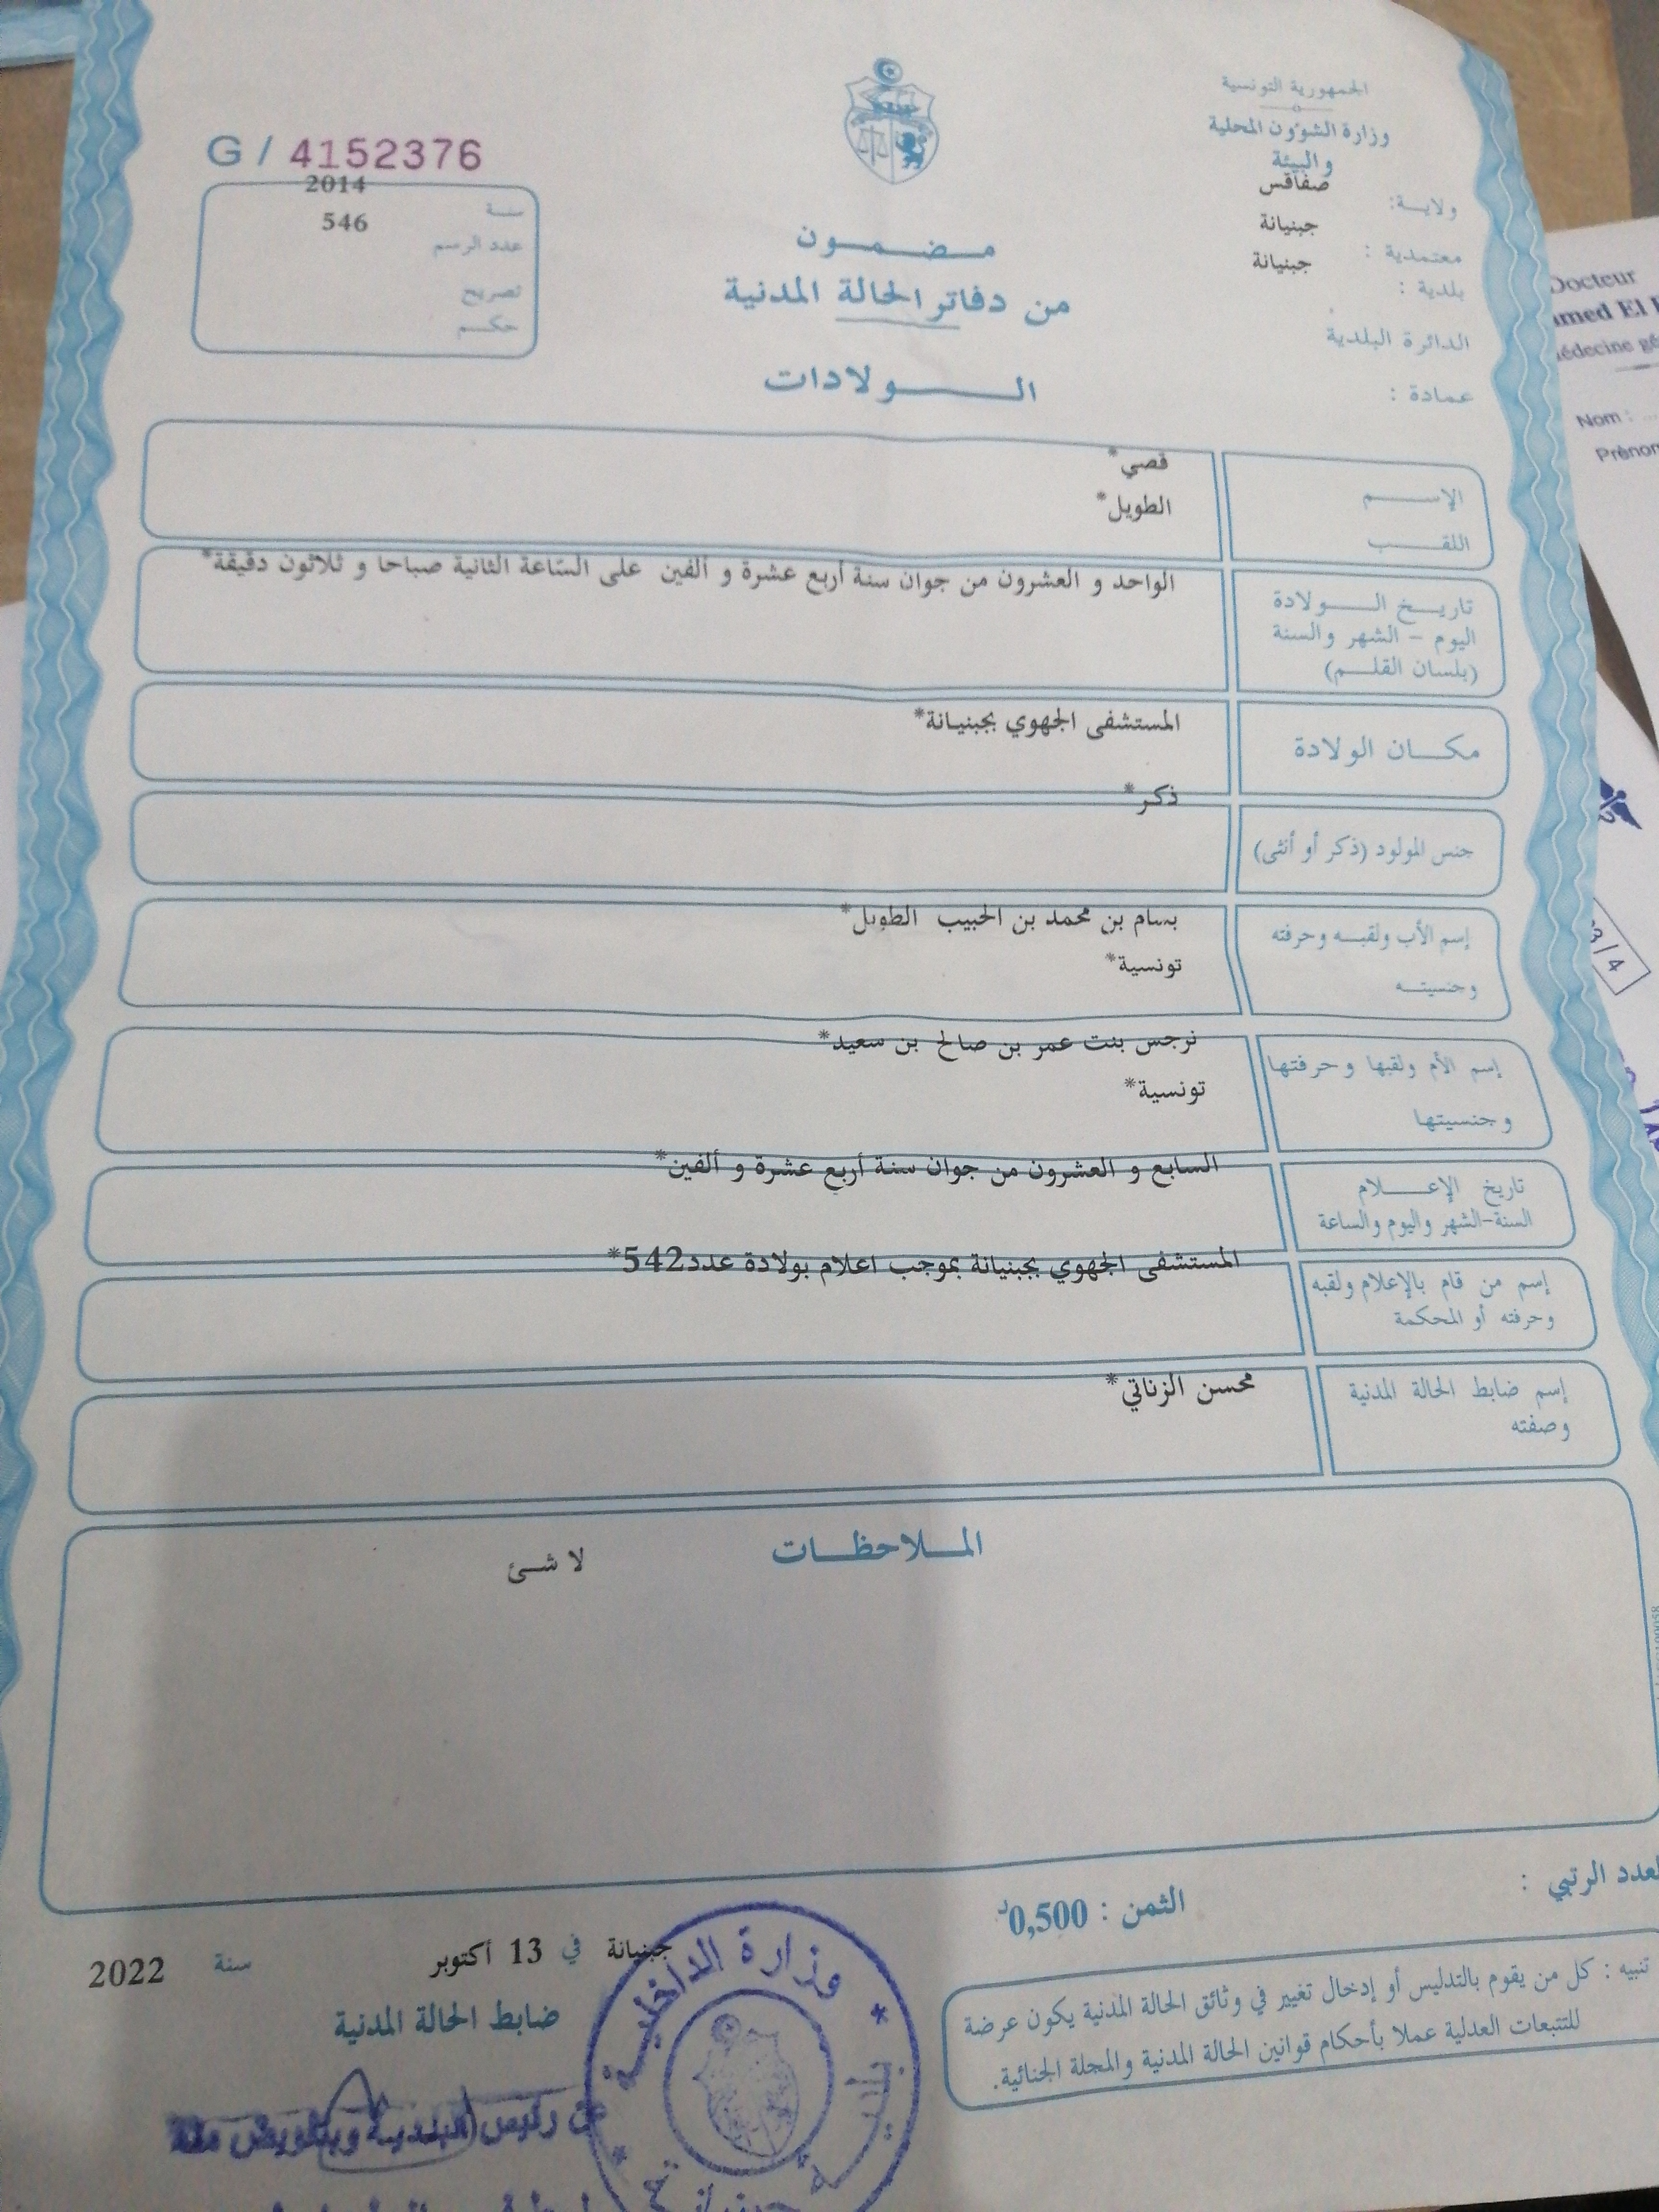 الجمهورية التونسية
وزارة الشؤون المحلية
والبيئة
ولاية: صفاقس
معتمدية : جبنيانة
بلدية : جبنيانة
الدائرة البلدية
عمادة :
G / 4152376
سنة 2014
عدد الرسم 546
تصريح
حكم
مضمون
من دفاتر الحالة المدنية
الولادات
الإسم قصي*
اللقب الطويل*
تاريخ الولادة
اليوم - الشهر والسنة
(بلسان القلم)
الواحد و العشرون من جوان سنة أربع عشرة و ألفين على الساعة الثانية صباحا و ثلاثون دقيقة*
مكان الولادة المستشفى الجهوي بجبنيانة*
جنس المولود (ذكر أو أنثى) ذكر*
إسم الأب ولقبه وحرفته بسام بن محمد بن الحبيب الطويل*
وجنسيته تونسية*
إسم الأم ولقبها وحرفتها نرجس بنت عمر بن صالح بن سعيد*
وجنسيتها تونسية*
تاريخ الإعلام السابع و العشرون من جوان سنة أربع عشرة و ألفين*
السنة-الشهر واليوم والساعة
إسم من قام بالإعلام ولقبه المستشفى الجهوي بجبنيانة بموجب اعلام بولادة عدد542*
وحرفته أو المحكمة
إسم ضابط الحالة المدنية محسن الزناتي*
وصفته
الملاحظات
لا شئ
العدد الرتبي :
الثمن : 0,500د
تنبيه : كل من يقوم بالتدليس أو إدخال تغيير في وثائق الحالة المدنية يكون عرضة
للتتبعات العدلية عملا بأحكام قوانين الحالة المدنية والمجلة الجنائية.
جبنيانة في 13 أكتوبر سنة 2022
ضابط الحالة المدنية
عن رئيس البلدية وبتفويض منه
وزارة الداخلية
بلدية جبنيانة
Docteur
amed El
Nom :
Prénom
3/4